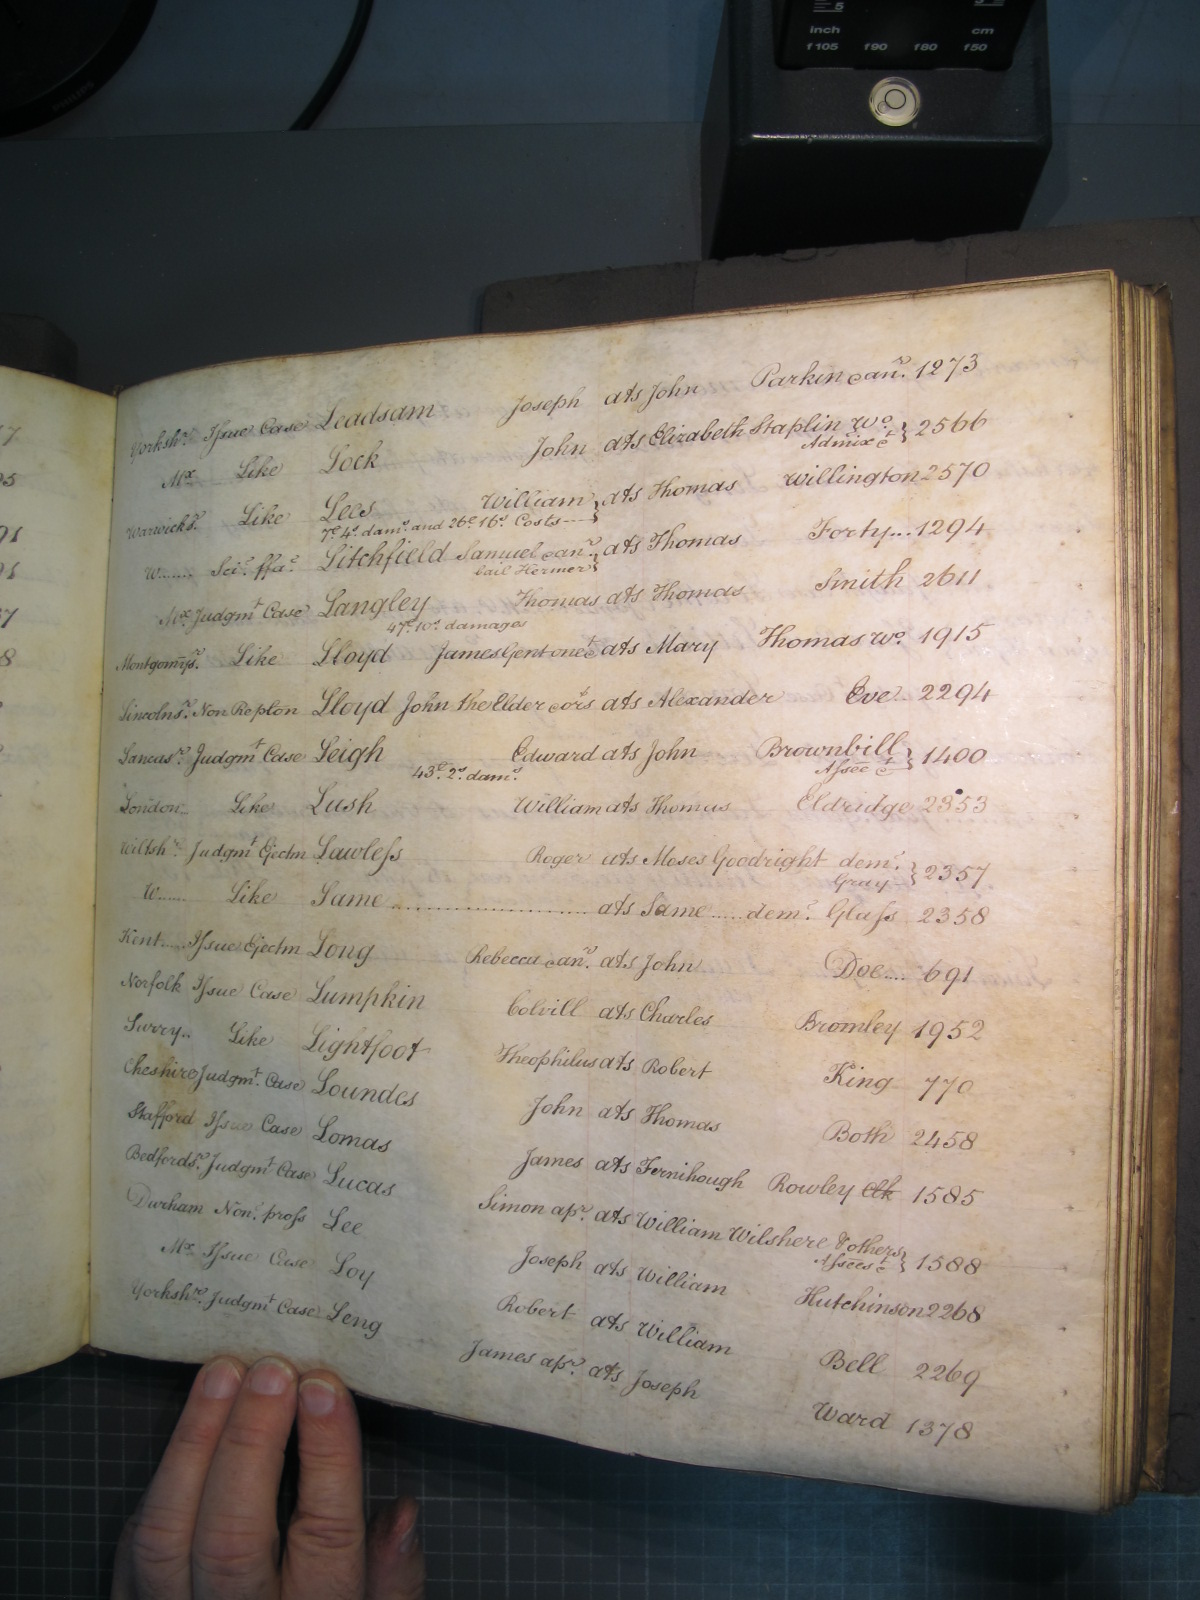 inch cm
f105 f90 f80 f50
Yorkshr. Issue Case Leadsam Joseph ats John Parkin & anr. 1273
Mx Like Lock John ats Elizabeth Staplin wo. 2566
Admix &c
Warwicks. Like Lees William ats Thomas Willington 2570
7£. 4s. dams. and 26£. 16s. Costs
W...... Sci. ffas. Litchfield Samuel & anr. ats Thomas Forty... 1294
bail Hermer
Mx Judgmt Case Langley Thomas ats Thomas Smith 2611
47£. 10s. damages
Montgomys. Like Lloyd James Gent one &c ats Mary Thomas wo. 1915
Lincolns. Non Replon Lloyd John the Elder & ors ats Alexander Eve.. 2294
Lancasr. Judgmt Case Leigh Edward ats John Brownbill 1400
43£. 2s. dams. Assee &c
London.. Like Lush William ats Thomas Eldridge 2353
Wiltshr. Judgmt Ejectm Lawless Roger ats Moses Goodright demr. 2357
Gray
W...... Like Same ats Same ..... demr. Glass 2358
Kent..... Issue Ejectm Long Rebecca & anr. ats John Doe.... 691
Norfolk Issue Case Lumpkin Colvill ats Charles Bromley 1952
Surry.. Like Lightfoot Theophilus ats Robert King 770
Cheshire Judgmt. Case Loundes John ats Thomas Both 2458
Stafford Issue Case Lomas James ats Fernihough Rowley Clk 1585
Bedfords. Judgmt Case Lucas Simon apr. ats William Wilshere & others 1588
Assees &c
Durham Non. pross Lee Joseph ats William Hutchinson 2268
Mx Issue Case Loy Robert ats William Bell 2269
Yorkshr. Judgmt Case Leng James apr. ats Joseph Ward 1378